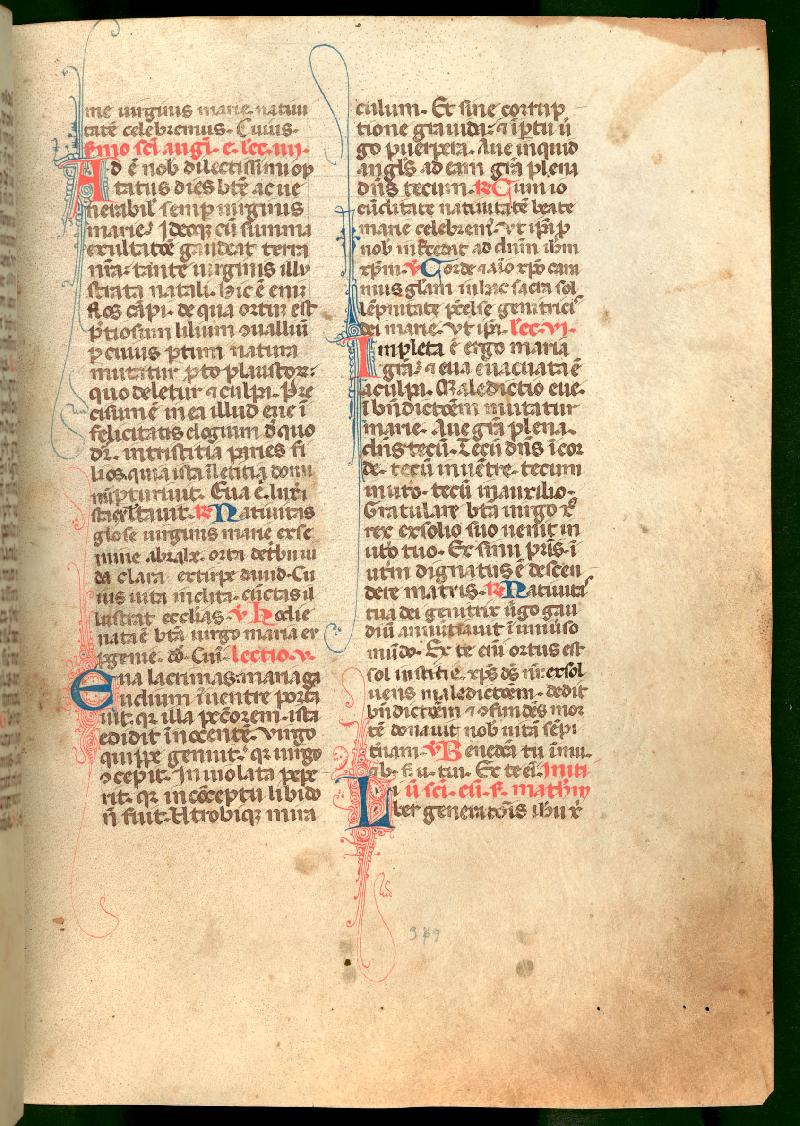 me uirginis marie natiui
tatē celebremus. Cuius.
s̄mo sc̄i augꝰ. e. lec. iiii.
Ad ē nob̄ dilectissimi op
tatus dies bt̄e ac ue
nerabil̄ semp uirginis
marie. Ideoqꝫ cū summa
exultatōe gaudeat terra
nr̄a. tante uirginis illu
strata natali. Hic ē enī
flos cāpi. de qua ortū est
p̄tiosum lilium ꝯualliū
ꝑ cuius ꝑtum natura
mutatur ꝓtoplaustoꝝ:
quo deletur ⁊ culpa. Pre
cisum ē in ea illud eue ī
felicitatis elogium. d̄ quo
dr̄. in tristitia paries fi
lios. quia ista ī letitia domi
nū pturiuit. Eua ē. luxi
sta exltauit. ℟ Natiuitas
gl̄ose uirginis marie ex se
mine abrahe. orta de tribu iu
da clara ex stirpe dauid. Cu
ius uita inclita. cūctas il
lustrat ecclias. ℣ Hodie
nata ē bt̄a uirgo maria ex
ꝓgenie. dd̄. Cui. lectio. v.
Eua lacrimas. maria ga
udium ī uentre porta
uit. qꝛ illa pctōrem. ista
edidit inocentē. Virgo
quippe genuit. qꝛ uirgo
ꝯcepit. Inuiolata pepe
rit. qꝛ in cōceptu libido
ñ fuit. Utrobiqꝫ mira
culum. Et sine corrup
tione grauida: ⁊ ī ptu ū
go puerpera. Aue inquid
angl̄s ad eam gr̄a plena
dn̄s tecum. ℟ Cum io
cūditate natiuitatē beate
marie celebrem̄. Vt ip̄a ꝓ
nob̄ īt̄cedat ad dnm̄ ihm̄
xpm̄. ℣ Corde ⁊ aīo xp̄o cana
mus glam̄ in hac sacra sol
lēpnitate p̄celse genitrici
dei marie. Vt ip̄a. lec. vi.
Impleta ē ergo maria
gr̄a. ⁊ eua euacuata ē
a culpa. Maledictio eue.
ī bn̄dictōem mutatur
marie. Aue gr̄a plena.
dn̄s tecū. Tecū dn̄s ī cor
de. tecū in uētre. tecum
in uto. tecū in auxilio.
Gratulare bt̄a uirgo x̄
rex ex solio suo uenit in
uto tuo. Ex sinu pr̄is. ī
utm̄ dignatus ē descen
dere matris. ℟ Natiuitas
tua dei genitrix ūgo gau
diū annūtiauit ī uniūso
mūdo. Ex te enī ortus est
sol iustitie. xp̄s ds̄ nr̄: et sol
uens maledictōem. dedit
bn̄dictōem ⁊ ꝯfundēs mor
tē donauit nob̄ uitā sēpi
tnam. ℣ Benedca tu ī mu
lib. f. u. tui. Ex te eī. Initi
ū sc̄i. eū. s. mathm
Liber generatōis ihu x̄
389